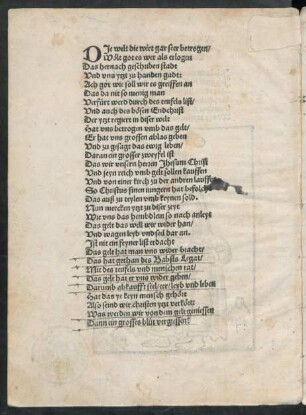 Die wült die wirt gar seer betrogen/
Wölt got es wer als erlogen
Das hernach geschriben stadt
Vnd vns ytzt zu handen gadt:
Ach got wie soll wir es greiffen an
Das da nit so menig man
Verfürt werd durch des teufels list/
Vnd auch des bösen Endchrist
Der yetz regiert in diser welt
Hat vns betrogen vmb das gelt/
Er hat vns grossen ablas geben
Vnd zu gesagt das ewig leben/
Daran ein grosser zweyfel ist
Das wir vnsern herrn Jhesum Christ
Vnd seyn reich vmb gelt sollen kauffen
Vnd von einer kirch zu der andern lauffen
So Christus sinen iungern hat befolchen
Das auß zu teylen vmb keynen sold.
Nun mercken yetz zu diser zeyt
Wie vns das hembd so nach anleyt
Das gelt das well wir wider han/
Vnd wagen leyb vnd seel dar an.
Ist nit ein feyner list erdacht
Das gelt hat man vns wider bracht/
Das hat gethan des Babsts Legat/
Mit des teufels vnd münchen rat/
Das gelt hat er vns wider geben/
Darumb abkaufft seel/eer/leyb vnd leben
Hat das ye keyn mensch gehört
Also seind wir christen yetz verkört:
Was werden wir von dem gelt geniessen
Dann ein grosses blüt vergiessen?